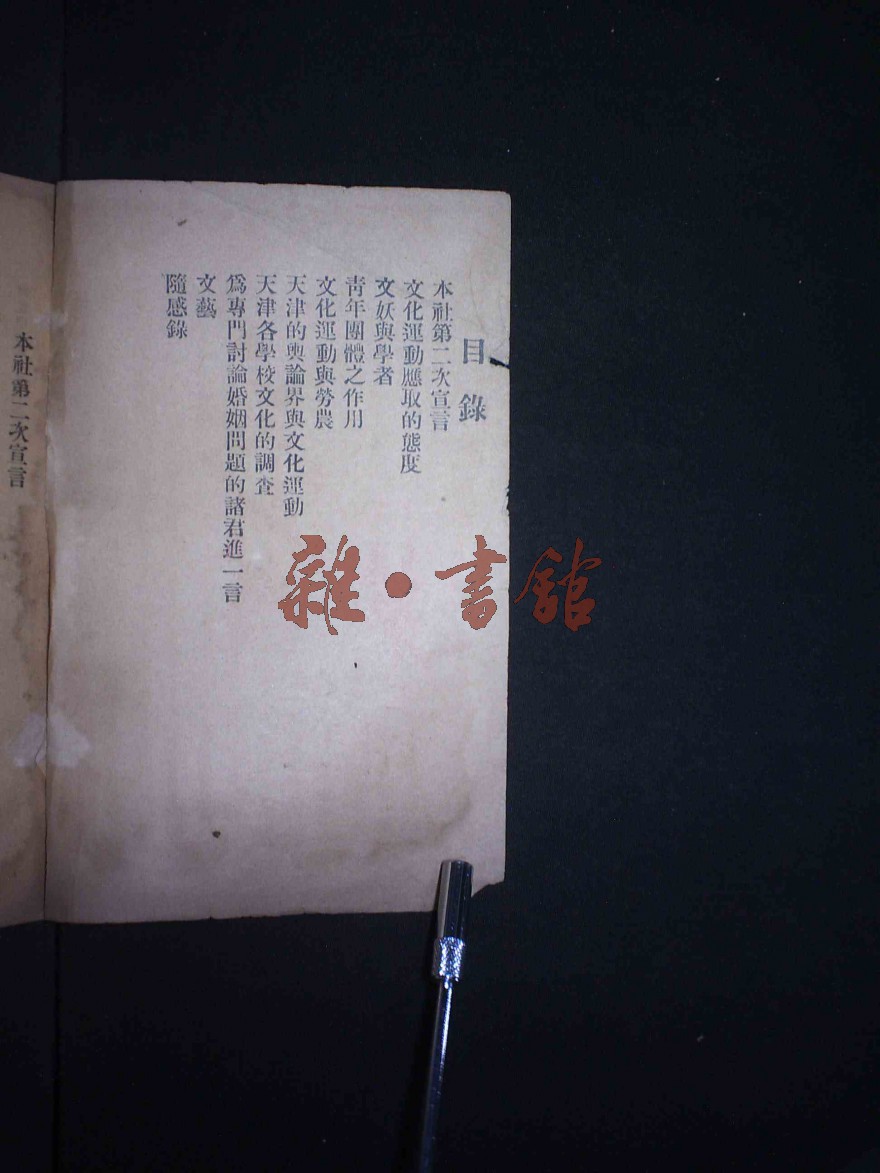 目錄
本社第二次宣言
文化運動應取的態度
文妖與學者
青年團體之作用
文化運動與勞農
天津的輿論界與文化運動
天津各學校文化的調查
爲專門討論婚姻問題的諸君進一言
文藝
隨感錄
本社第二次宣言
雜·書館